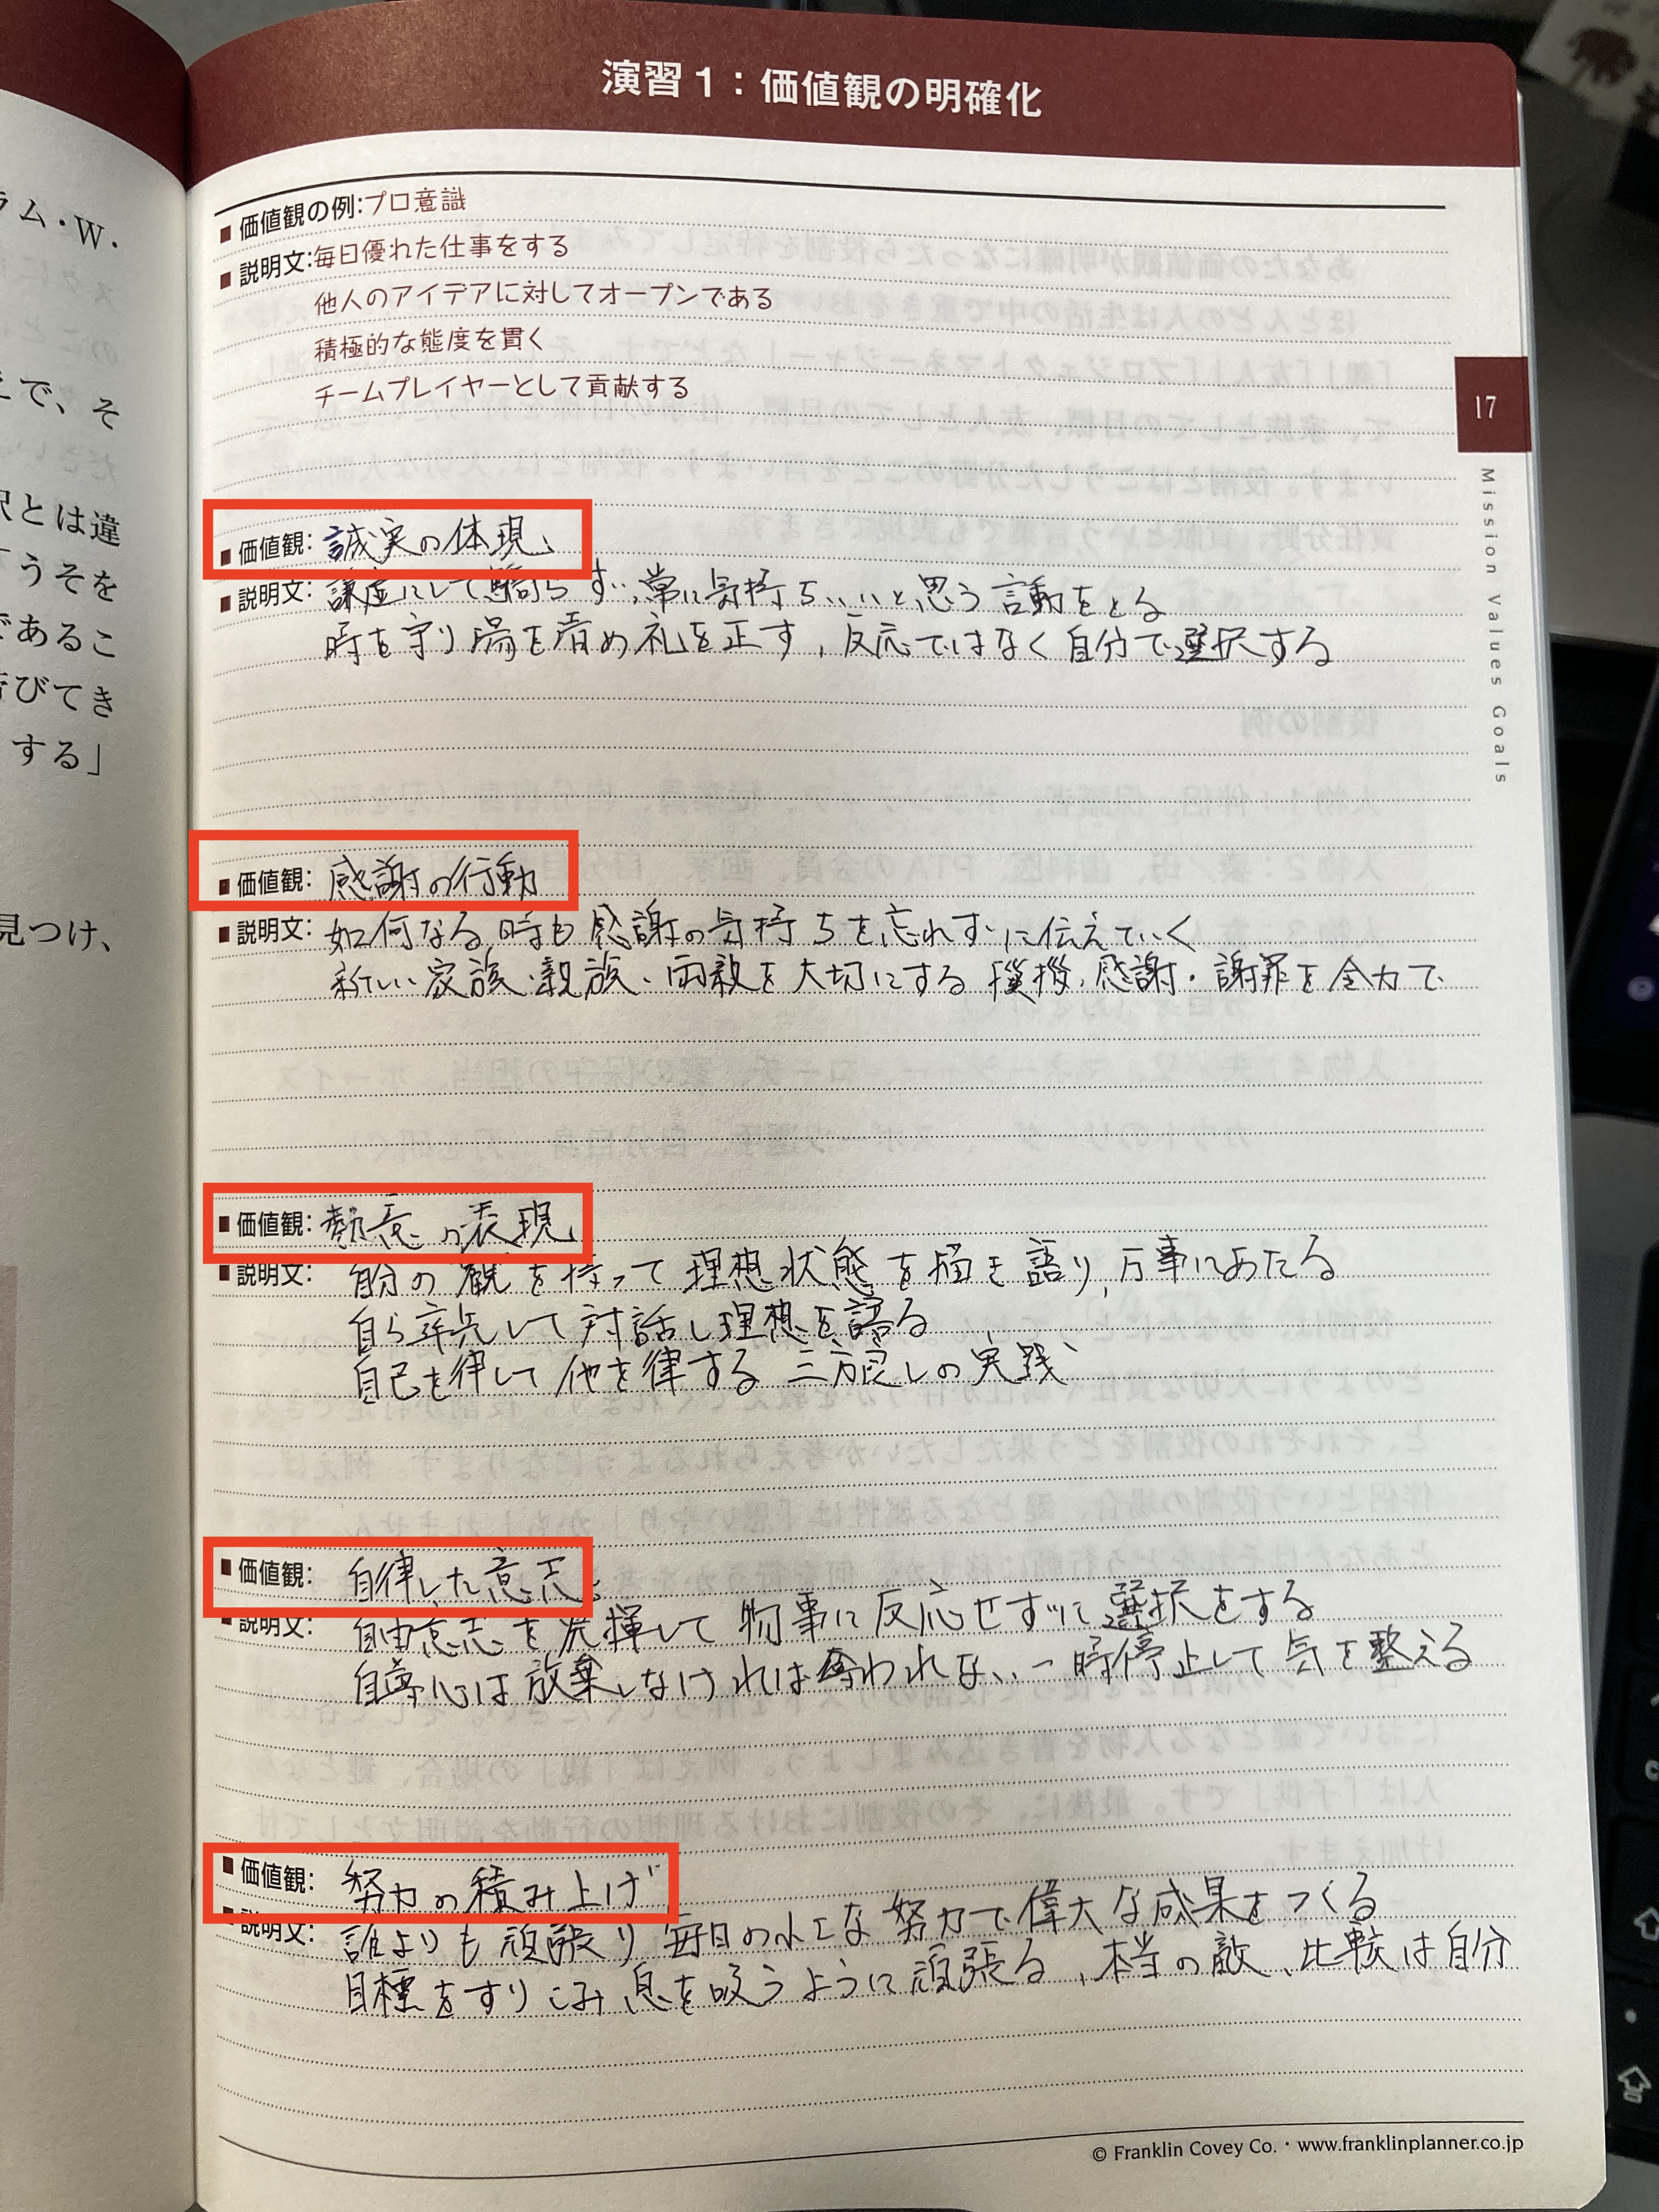 ラム・W・
とで、そ
択とは違
「うそを
であるこ
喜びてき
する」
見つけ、
演習1：価値観の明確化
■価値観の例:プロ意識
■説明文:毎日優れた仕事をする
他人のアイデアに対してオープンである
積極的な態度を貫く
チームプレイヤーとして貢献する
17
Mission Values Goals
■価値観: 誠実の体現
■説明文: 謙虚にして驕らず、常に気持ちいいと思う言動をとる
時を守り場を清め礼を正す、反応ではなく自分で選択する
■価値観: 感謝の行動
■説明文: 如何なる時も感謝の気持ちを忘れずに伝えていく
新しい家族・親族・両親を大切にする 挨拶・感謝・謝罪を全力で
■価値観: 熱意の表現
■説明文: 自分の観を持って理想状態を描き語り、万事にあたる
自ら率先して対話し理想を語る
自己を律して他を律する 三方良しの実践
■価値観: 自律した意志
■説明文: 自由意志を発揮して物事に反応せずに選択をする
自尊心は放棄しなければ奪われない、一時停止して気を整える
■価値観: 努力の積み上げ
■説明文: 誰よりも頑張り毎日の小さな努力で偉大な成果をつくる
目標をすりこみ息を吸うように頑張る、本当の敵、比較は自分
© Franklin Covey Co.・www.franklinplanner.co.jp